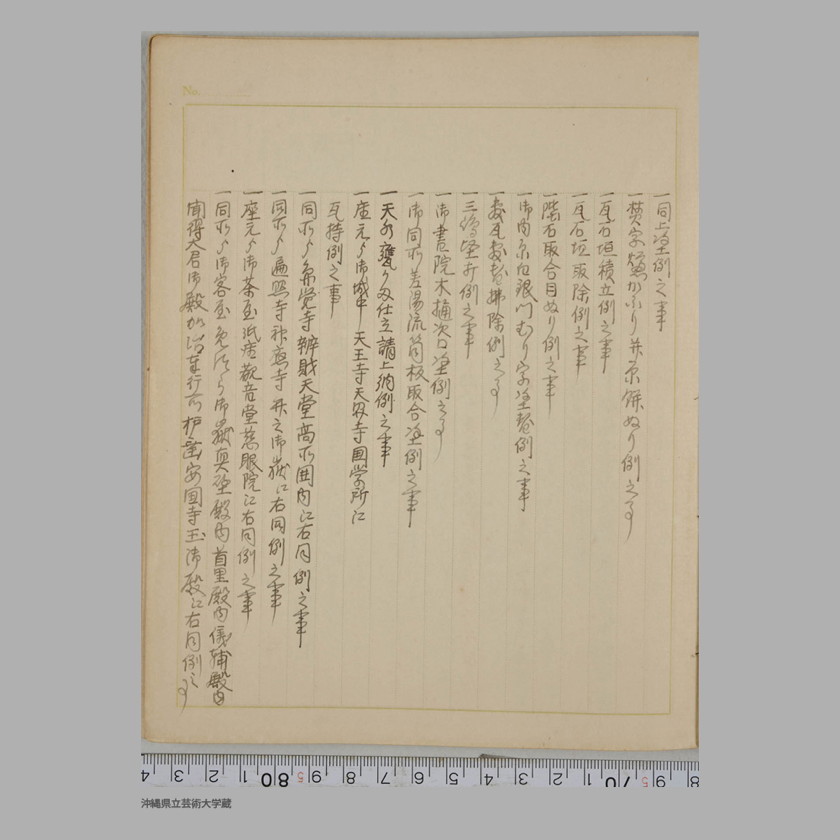 一同上塗例之事
一梵字額かふり并京餅ぬり例之事
一瓦石垣積立例之事
一瓦石垣取除例之事
一階石取合目ぬり例之事
一御内原白銀門むり字塗替例之事
一敷瓦敷替掃除例之事
一三陽塗并例之事
一御書院木樋次口塗例之事
一御同所差湯流筒板取合塗例之事
一天水甕り仕立請上納例之事
一座元ゟ御城中天王寺天界寺国学所江
瓦持例之事
一同所ゟ円覚寺辨財天堂高所囲内江右同例之事
一同所ゟ遍照寺神応寺并之御嶽江右同例之事
一座元ゟ御茶屋祇園観音堂慈眼院江右同例之事
一同所ゟ御客屋御嶽真壁殿内首里殿内儀保殿内
聞得大君御殿安国寺玉御殿江右同例之事
No.
沖縄県立芸術大学蔵
4 3 2 1 80 9 8 7 6 5 4 3 2 1 70 9 8